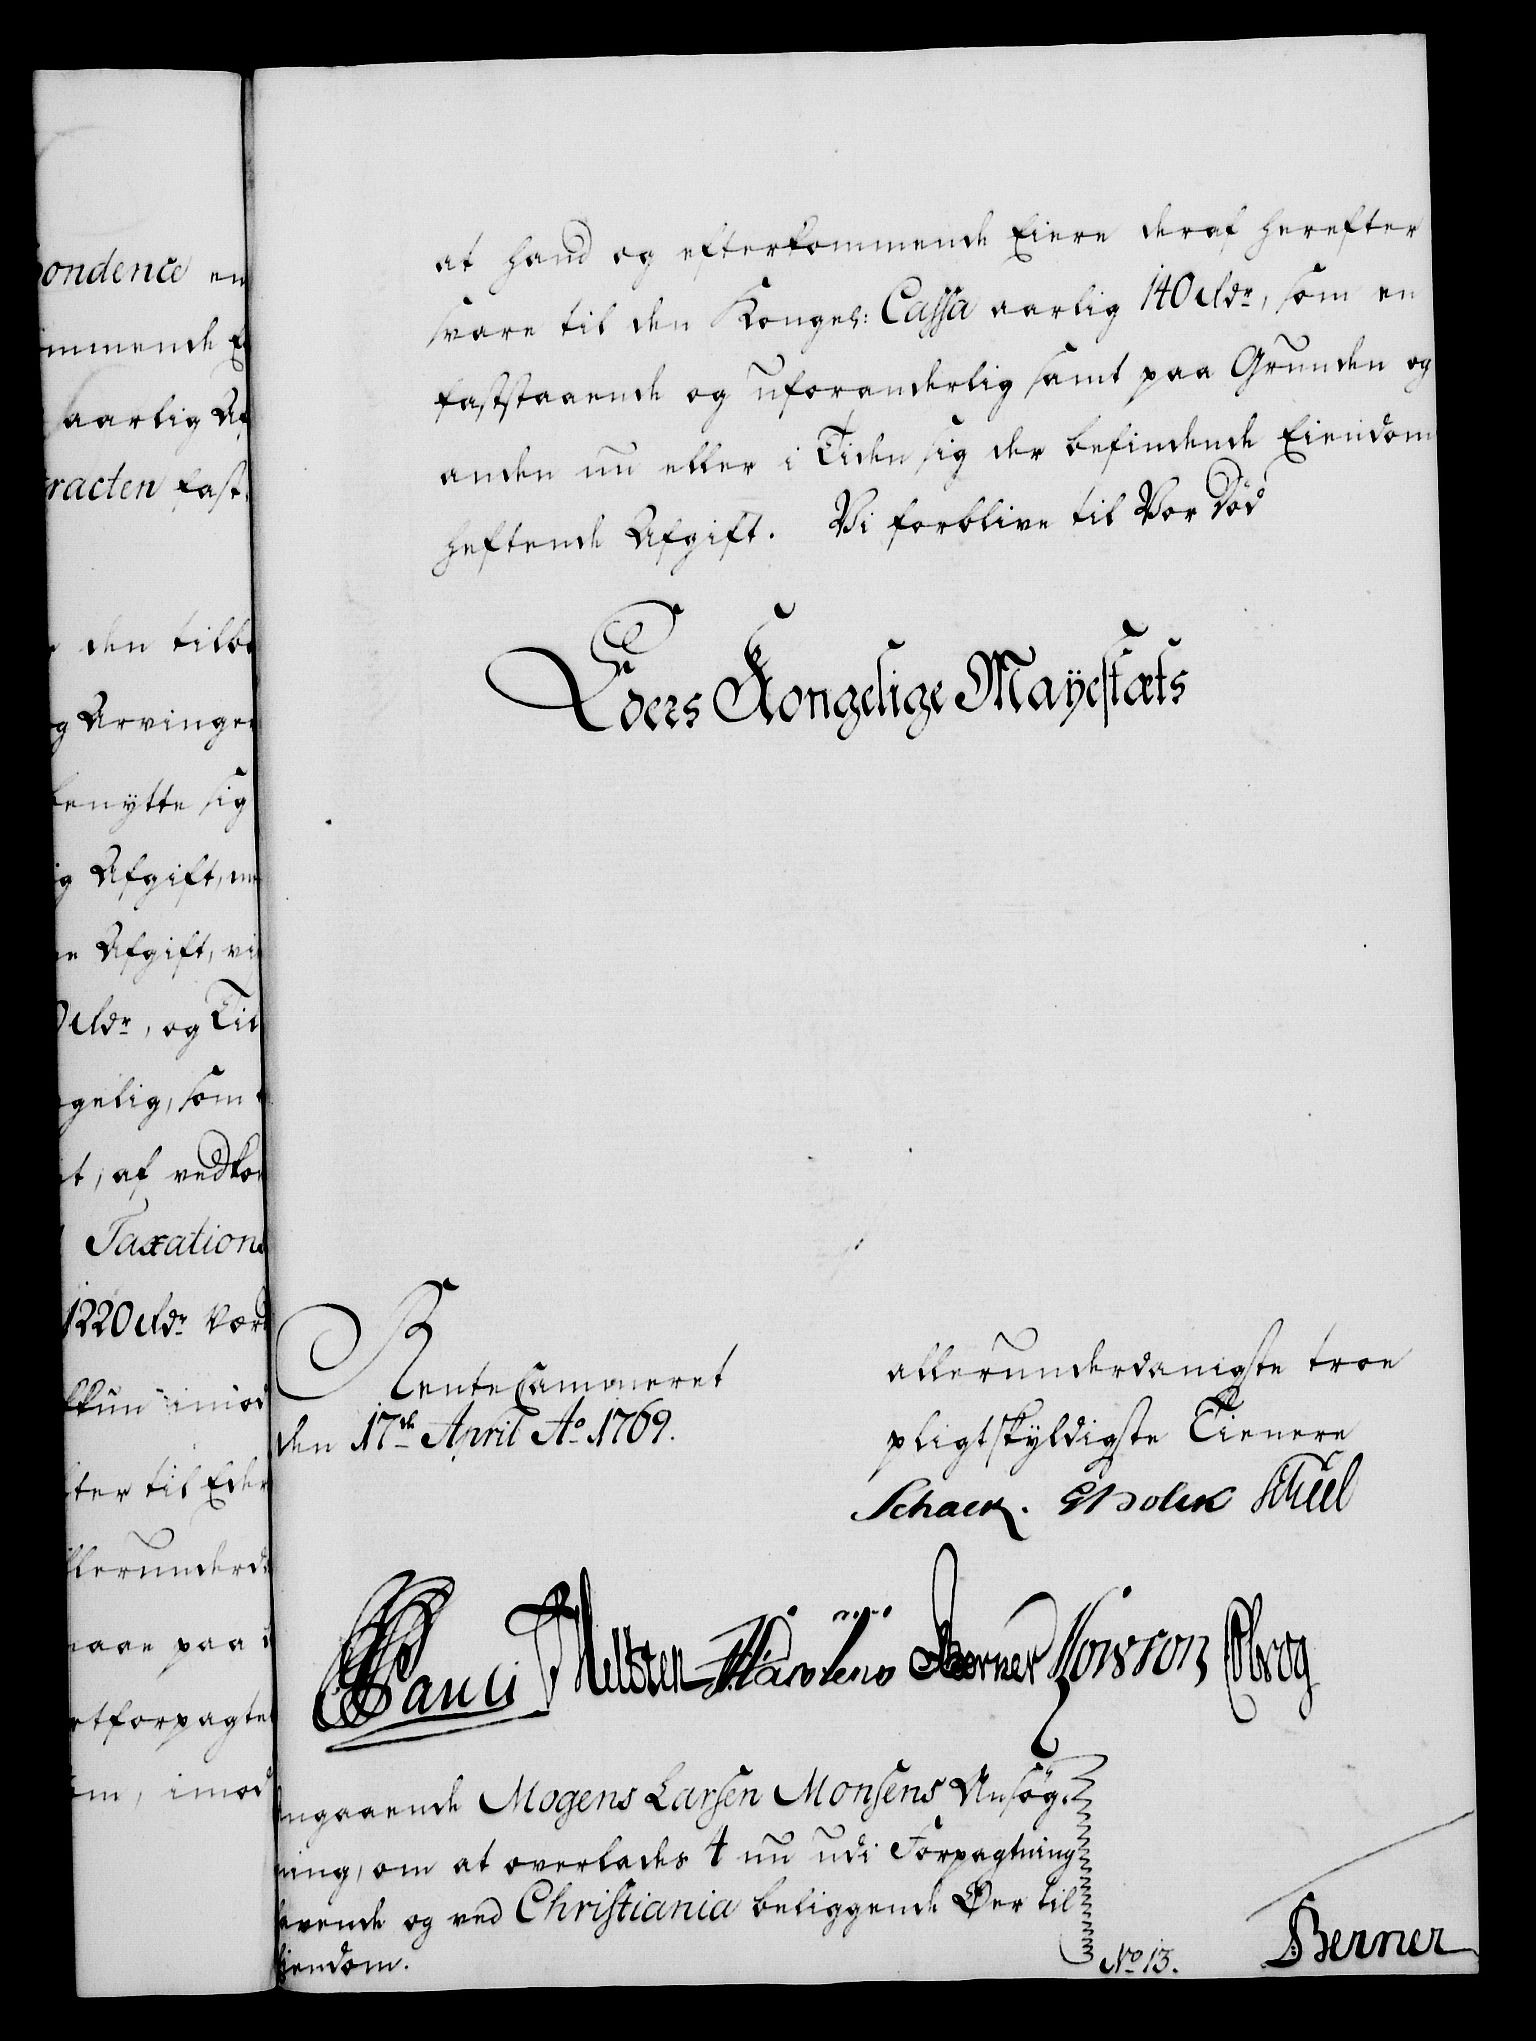 ondence en
mmende E
aarlig Af
racten fast
den tilbe
g Arvinger
benytte sig
ig Afgift, m
ne Afgift, vi
0 rldr, og Tid
gelig, som
t, af vedkom
Taxations
1220 rldr Vær
kkun imod
ter til Eders
llerunderda
naae paa
rtforpagte
om, imod
at hand og efterkommende Eiere deraf herefter
svare til den Kongel: Cassa aarlig 140 rldr, som en
faststaaende og uforanderlig samt paa Grunden og
anden nu eller i Tiden sig der befindende Eiendom
heftende Afgift. Vi forblive til Vor Død
Eders Kongelige Mayestæts
RenteCammeret
den 17de April Ao 1769.
allerunderdanigste troe
pligtskyldigste Tienere
Schack. Holck Scheel
Pauli Hellsten Berner
ngaaende Mogens Larsen Monsens Ansøg-
ning, om at overlades 4 nu udi Forpagtning
havende og ved Christiania beliggende Øer til
Eiendom.
No 13.
Berner